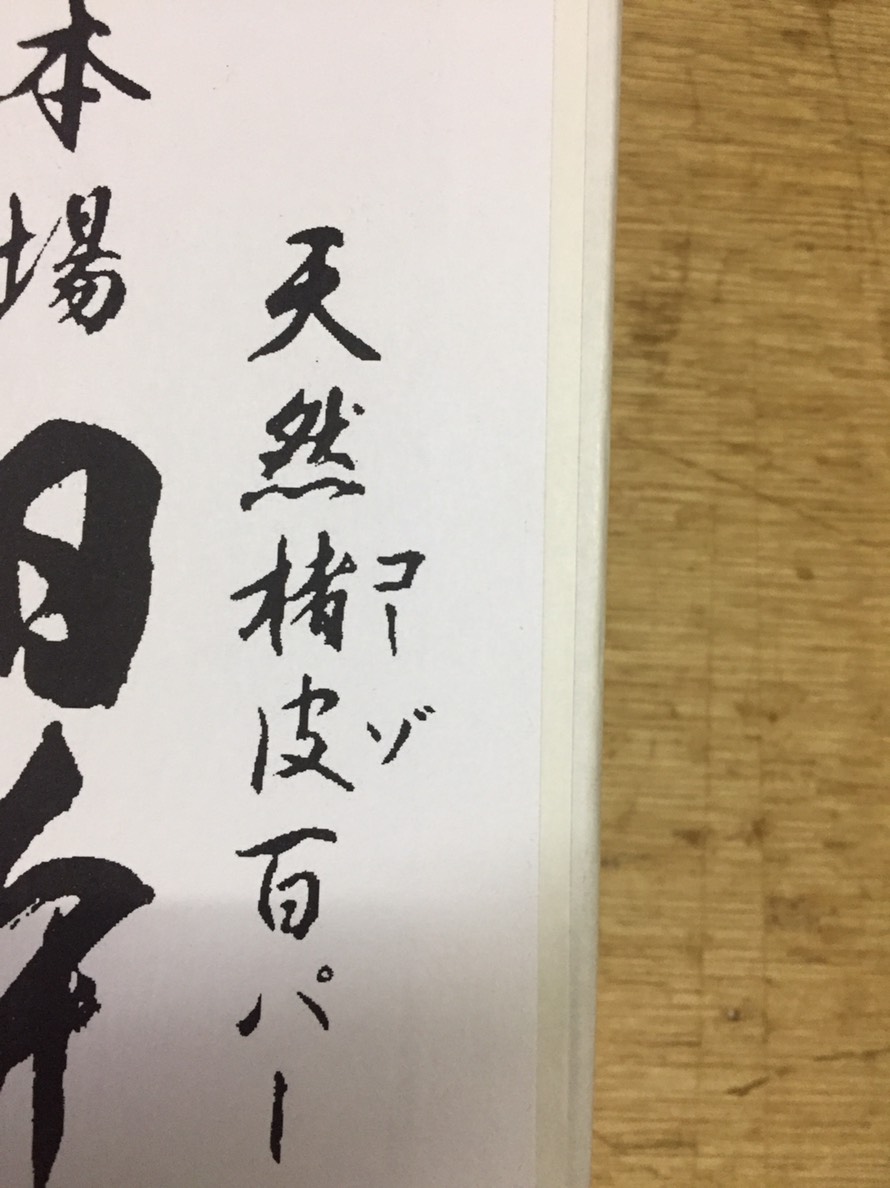 天然楮皮百パー
コーゾ
本場日